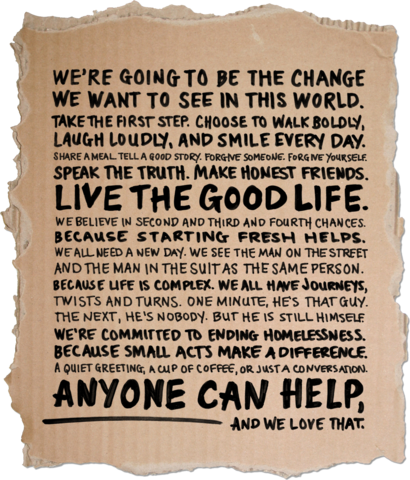 WE'RE GOING TO BE THE CHANGE
WE WANT TO SEE IN THIS WORLD.
TAKE THE FIRST STEP. CHOOSE TO WALK BOLDLY,
LAUGH LOUDLY, AND SMILE EVERY DAY.
SHARE A MEAL. TELL A GOOD STORY. FORGIVE SOMEONE. FORGIVE YOURSELF.
SPEAK THE TRUTH. MAKE HONEST FRIENDS.
LIVE THE GOOD LIFE.
WE BELIEVE IN SECOND AND THIRD AND FOURTH CHANCES.
BECAUSE STARTING FRESH HELPS.
WE ALL NEED A NEW DAY. WE SEE THE MAN ON THE STREET
AND THE MAN IN THE SUIT AS THE SAME PERSON.
BECAUSE LIFE IS COMPLEX. WE ALL HAVE JOURNEYS,
TWISTS AND TURNS. ONE MINUTE, HE'S THAT GUY.
THE NEXT, HE'S NOBODY. BUT HE IS STILL HIMSELF.
WE'RE COMMITTED TO ENDING HOMELESSNESS.
BECAUSE SMALL ACTS MAKE A DIFFERENCE.
A QUIET GREETING, A CUP OF COFFEE, OR JUST A CONVERSATION.
ANYONE CAN HELP,
AND WE LOVE THAT.